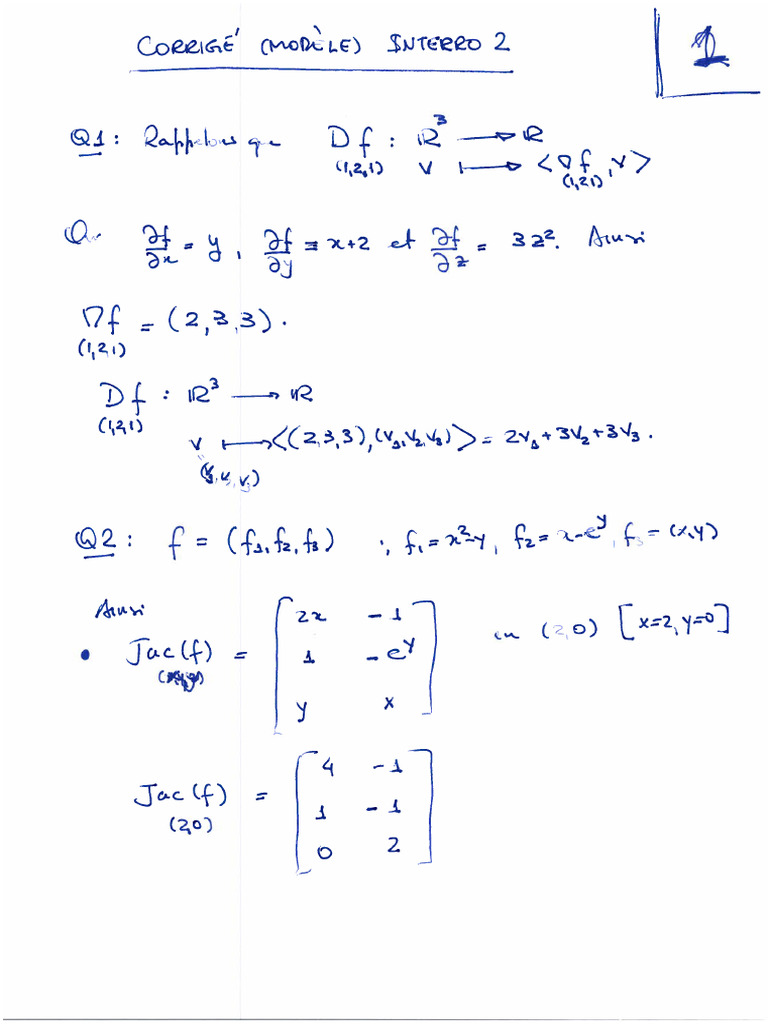 CORRIGÉ (MODÈLE) INTERRO 2
1
Q1 : Rappelons que Df : ℝ³ ⟶ ℝ
(1,2,1) v ⟼ <∇f, v>
(1,2,1)
Or ∂f/∂x = y, ∂f/∂y = x+2 et ∂f/∂z = 3z². Ainsi
∇f = (2,3,3).
(1,2,1)
Df : ℝ³ ⟶ ℝ
(1,2,1)
v ⟼ <(2,3,3),(v₁,v₂,v₃)> = 2v₁+3v₂+3v₃.
(v₁,v₂,v₃)
Q2 : f = (f₁,f₂,f₃) ; f₁=x²-y, f₂= x-e^y, f₃=(x,y)
Ainsi
• Jac(f) = [2x -1
1 -e^y
y x] en (2,0) [x=2, y=0]
Jac(f) = [4 -1
(2,0) 1 -1
0 2]